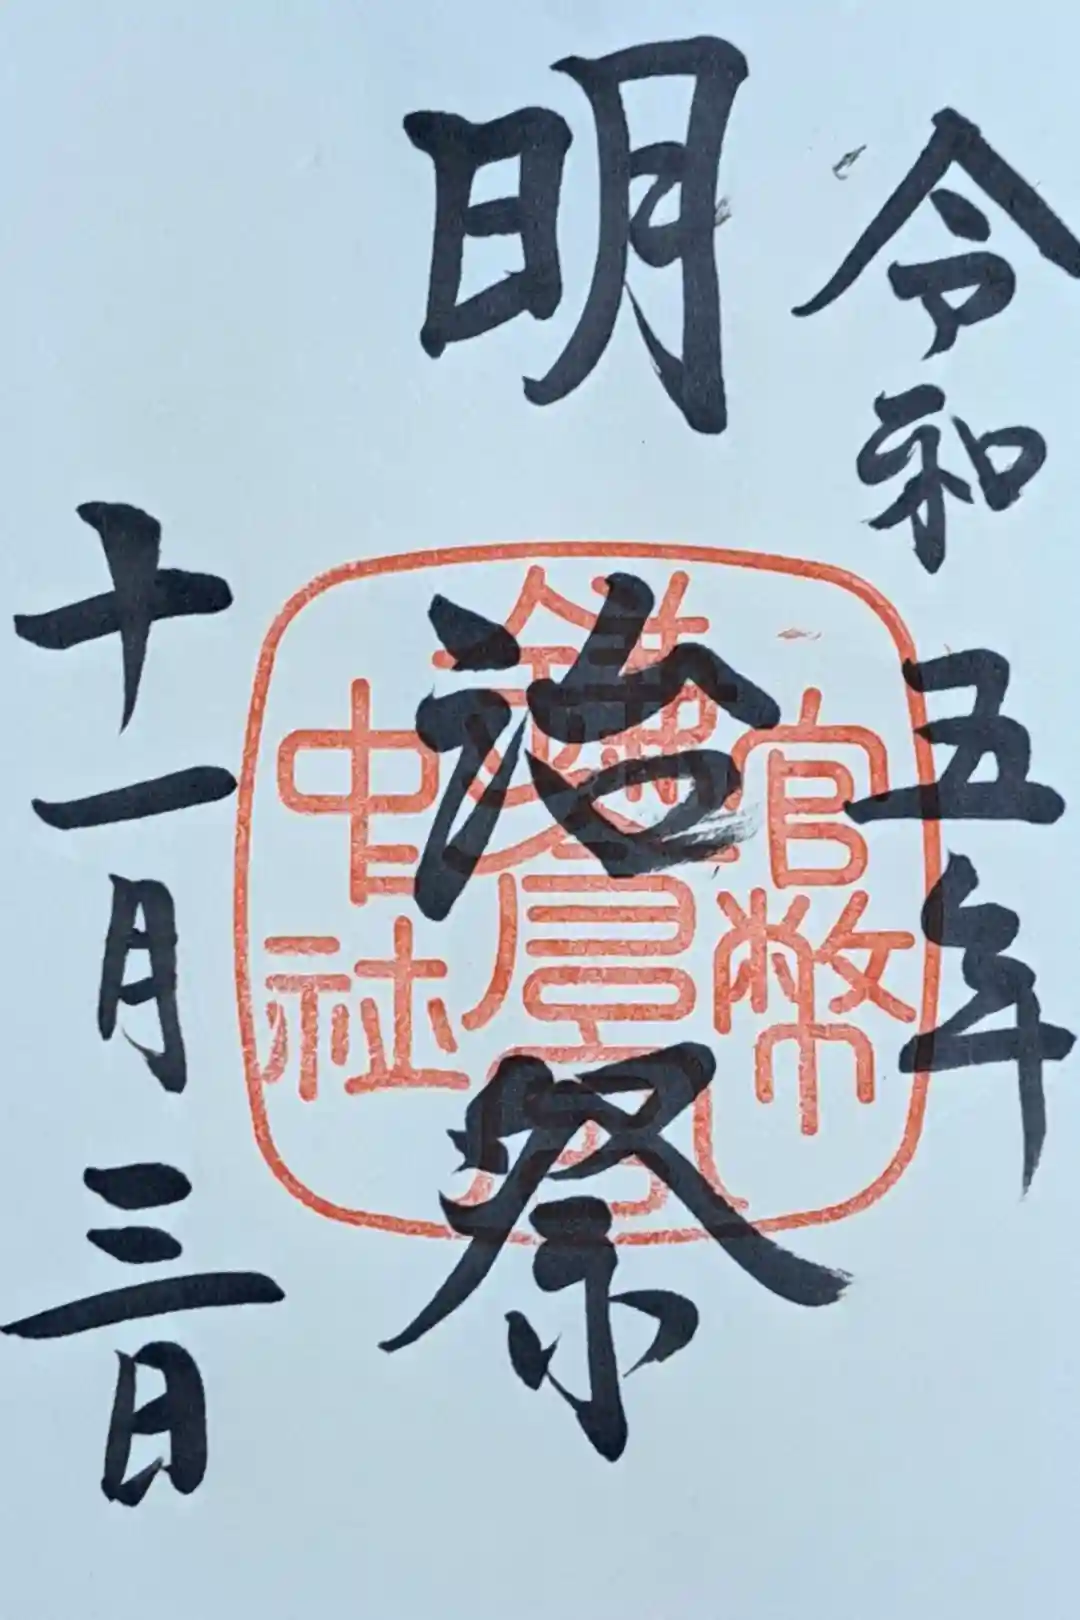 令和五年
明治祭
十一月三日
官幣
鎌倉宮
中社